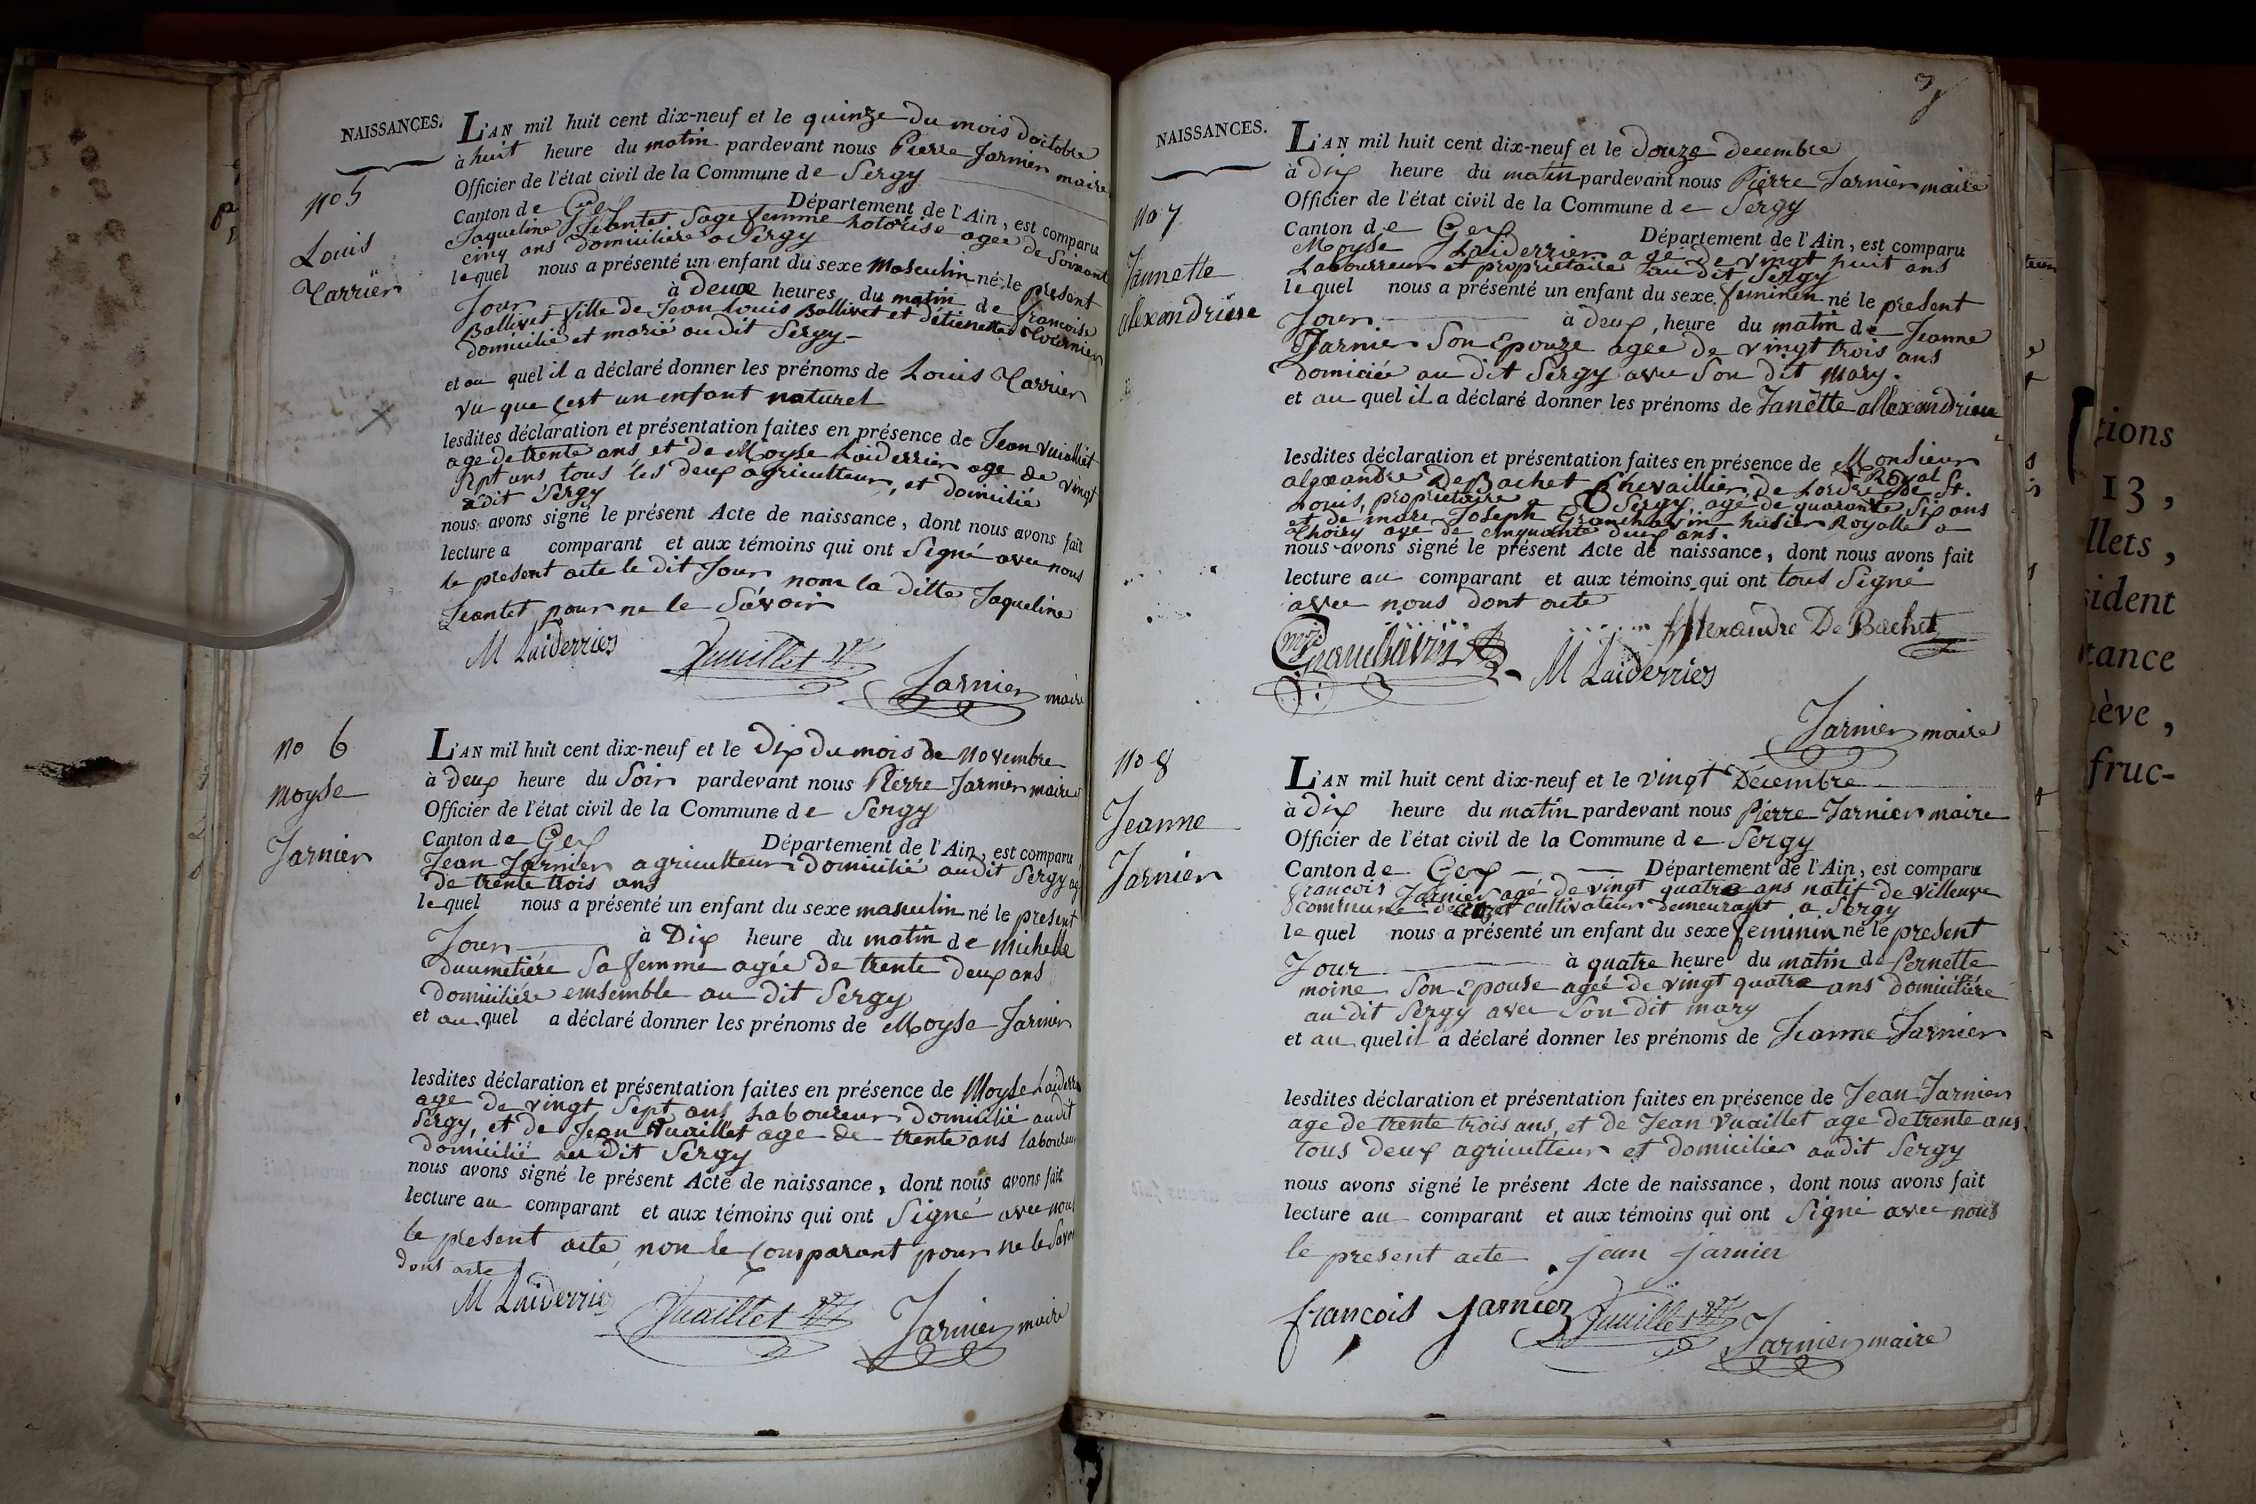 NAISSANCES.
no 5
Louis
Carrier
L'AN mil huit cent dix-neuf et le quinze du mois doctobre
à huit heure du matin pardevant nous Pierre Jarnier maire
Officier de l'état civil de la Commune de Sergy
Canton de Gex Département de l'Ain, est comparu
Jaqueline Jeantet Sage femme notorise agee de Soixante
cinq ans domiciliere a Sergy
lequel nous a présenté un enfant du sexe Masculin né le present
Jour à deux heures du matin de francoise
Ballivet fille de Jean Louis Ballivet et détienette Tournier
domicilié et marié au dit Sergy
et au quel il a déclaré donner les prénoms de Louis Carrier
vu que cest un enfant naturel
lesdites déclaration et présentation faites en présence de Jean Vuaillet
age de trente ans et de Moyse Laiderrier age de vingt
Sept ans tous les deux agriculteur, et domicilié
a dit Sergy
nous avons signé le présent Acte de naissance, dont nous avons fait
lecture a comparant et aux témoins qui ont Signé avec nous
le present acte le dit Jour non la ditte Jaqueline
Jeantet pour ne le Savoir
M Laiderrier Vuaillet Jarnier maire
no 6
Moyse
Jarnier
L'AN mil huit cent dix-neuf et le Dix du mois de Novembre
à deux heure du Soir pardevant nous Pierre Jarnier maire
Officier de l'état civil de la Commune de Sergy
Canton de Gex Département de l'Ain, est comparu
Jean Jarnier agriculteur domicilié au dit Sergy agé
de trente trois ans
lequel nous a présenté un enfant du sexe masculin né le present
Jour à Dix heure du matin de Michelle
dumetiére Sa femme agée de trente deux ans
domiciliére emsemble au dit Sergy
et au quel a déclaré donner les prénoms de Moyse Jarnier
lesdites déclaration et présentation faites en présence de Moyse Laiderrier
age de vingt Sept ans Laboureur domicilié audit
Sergy, et de Jean Vuaillet age de trente ans laboureur
domicilié au dit Sergy
nous avons signé le présent Acte de naissance, dont nous avons fait
lecture au comparant et aux témoins qui ont Signé avec nous
le present acte, non le Comparant pour ne le Savoir
dont acte
M Laiderrier Vuaillet Jarnier maire
NAISSANCES.
no 7
Jannette
alexandrine
L'AN mil huit cent dix-neuf et le douze decembre
à dix heure du matin pardevant nous Pierre Jarnier maire
Officier de l'état civil de la Commune de Sergy
Canton de Gex Département de l'Ain, est comparu
Moyse Laiderrier agé de vingt huit ans
Labourreur et propriétaire au dit Sergy
lequel nous a présenté un enfant du sexe feminin né le present
Jour à deux, heure du matin de Jeanne
Jarnier Son Epouze agée de vingt trois ans
domiciée au dit Sergy avec Son dit mary.
et au quel il a déclaré donner les prénoms de Janètte allexandrine
lesdites déclaration et présentation faites en présence de Monsieur
alexandre De Bachet Chevaillier de Lordre Royal De St.
Louis, propriétaire a Sergy, age de quarante Six ans
et de marc Joseph Granchavin huisier Royalle a
Thoiry age de cinquante deux ans.
nous avons signé le présent Acte de naissance, dont nous avons fait
lecture au comparant et aux témoins qui ont tous Signé
avec nous dont acte
Alexandre De Bachet
Granchavin M Laiderrier
Jarnier maire
no 8
Jeanne
Jarnier
L'AN mil huit cent dix-neuf et le vingt Décembre
à dix heure du matin pardevant nous Pierre Jarnier maire
Officier de l'état civil de la Commune de Sergy
Canton de Gex Département de l'Ain, est comparu
francois Jarnier agé de vingt quatre ans natif de villeuve
commune de cultivateur demeurant a Sergy
lequel nous a présenté un enfant du sexe feminin né le present
Jour à quatre heure du matin de Pernette
moine Son Epouse ageé de vingt quatre ans domiciliére
au dit Sergy avec Son dit mary
et au quel il a déclaré donner les prénoms de Jeanne Jarnier
lesdites déclaration et présentation faites en présence de Jean Jarnier
age de trente trois ans, et de Jean Vuaillet age de trente ans
tous deux agriculteur et domicilier audit Sergy
nous avons signé le présent Acte de naissance, dont nous avons fait
lecture au comparant et aux témoins qui ont Signé avec nous
le present acte jean jarnier
françois jarnier Vuaillet Jarnier maire
tions
13,
llets,
sident
tance
nève,
fruc-